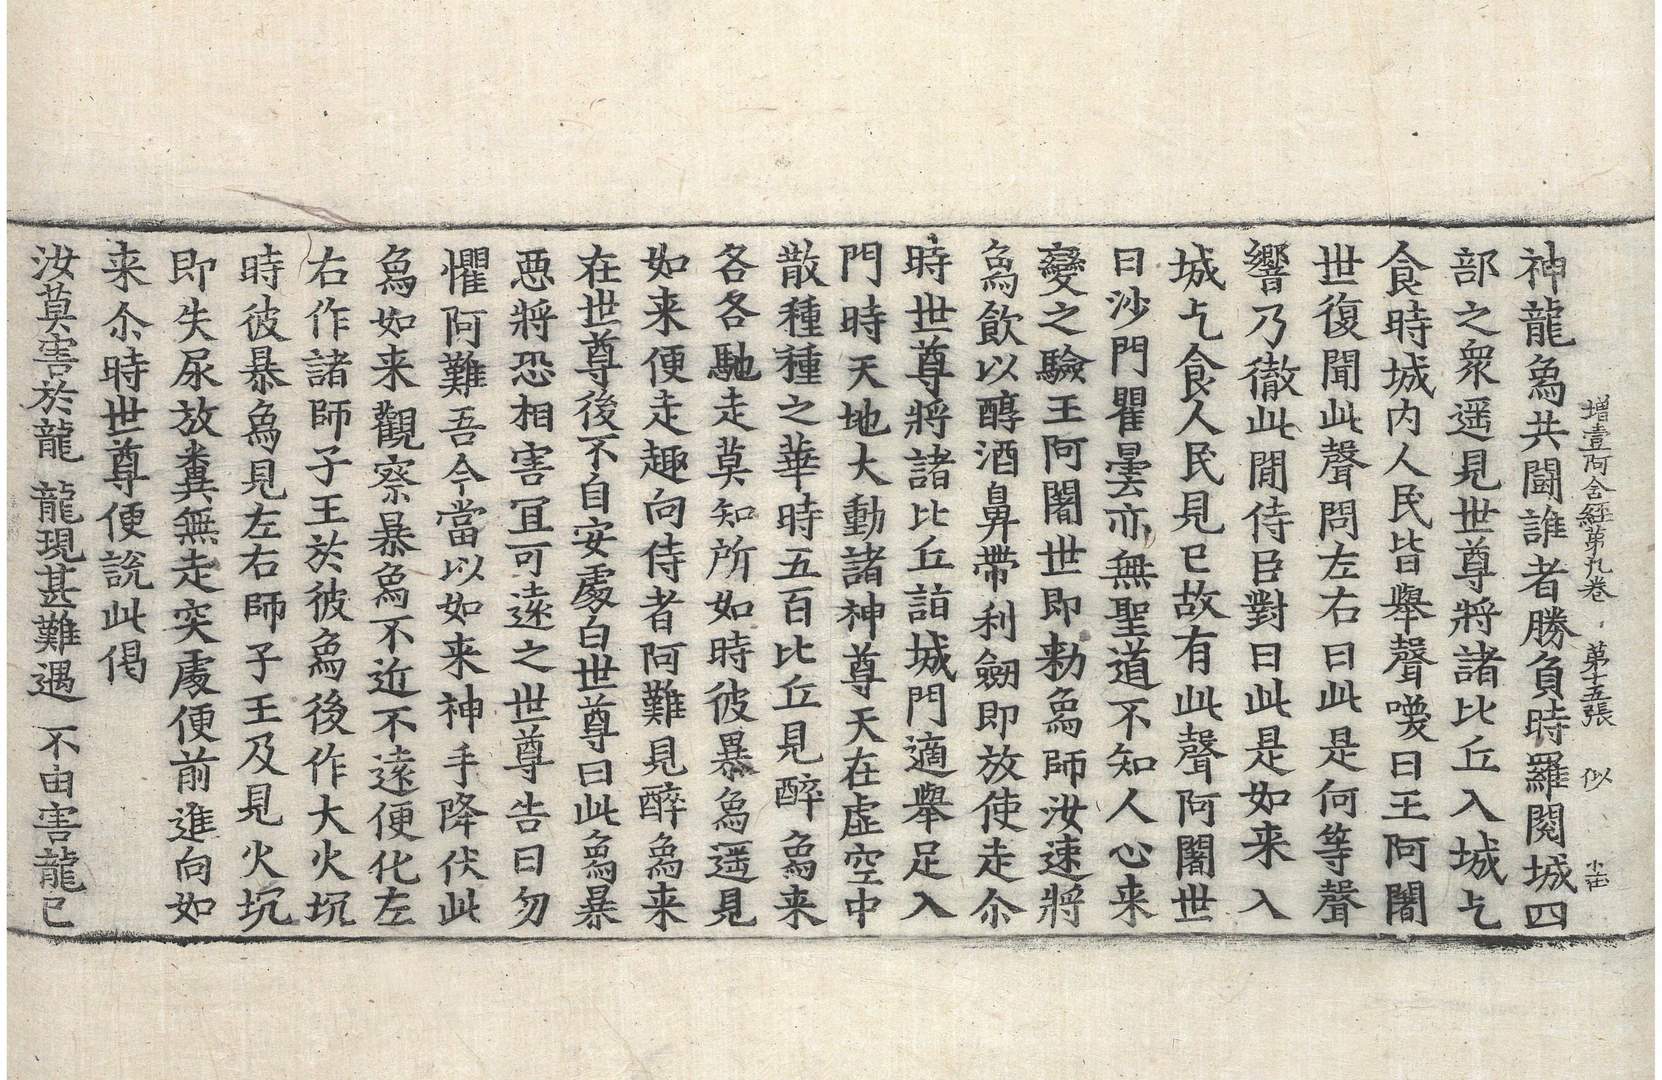 增壹阿含經第九卷 第十五張 似
神龍爲共鬪誰者勝負時羅閱城四
部之衆遥見世尊將諸比丘入城乞
食時城内人民皆舉聲喚曰王阿闍
世復聞此聲問左右曰此是何等聲
響乃徹此間侍臣對曰此是如来入
城乞食人民見已故有此聲阿闍世
曰沙門瞿曇亦無聖道不知人心来
變之驗王阿闍世即勑爲師汝速將
爲飲以醇酒鼻帶利劒即放使走尒
時世尊將諸比丘詣城門適舉足入
門時天地大動諸神尊天在虛空中
散種種之華時五百比丘見醉爲来
各各馳走莫知所如時彼暴爲遥見
如来便走趣向侍者阿難見醉爲来
在世尊後不自安處白世尊曰此爲暴
惡將恐相害冝可遠之世尊告曰勿
懼阿難吾今當以如来神手降伏此
爲如来觀察暴爲不近不遠便化左
右作諸師子王於彼爲後作大火坑
時彼暴爲見左右師子王及見火坑
即失尿放糞無走突處便前進向如
来尒時世尊便說此偈
汝莫害於龍 龍現甚難遇 不由害龍已